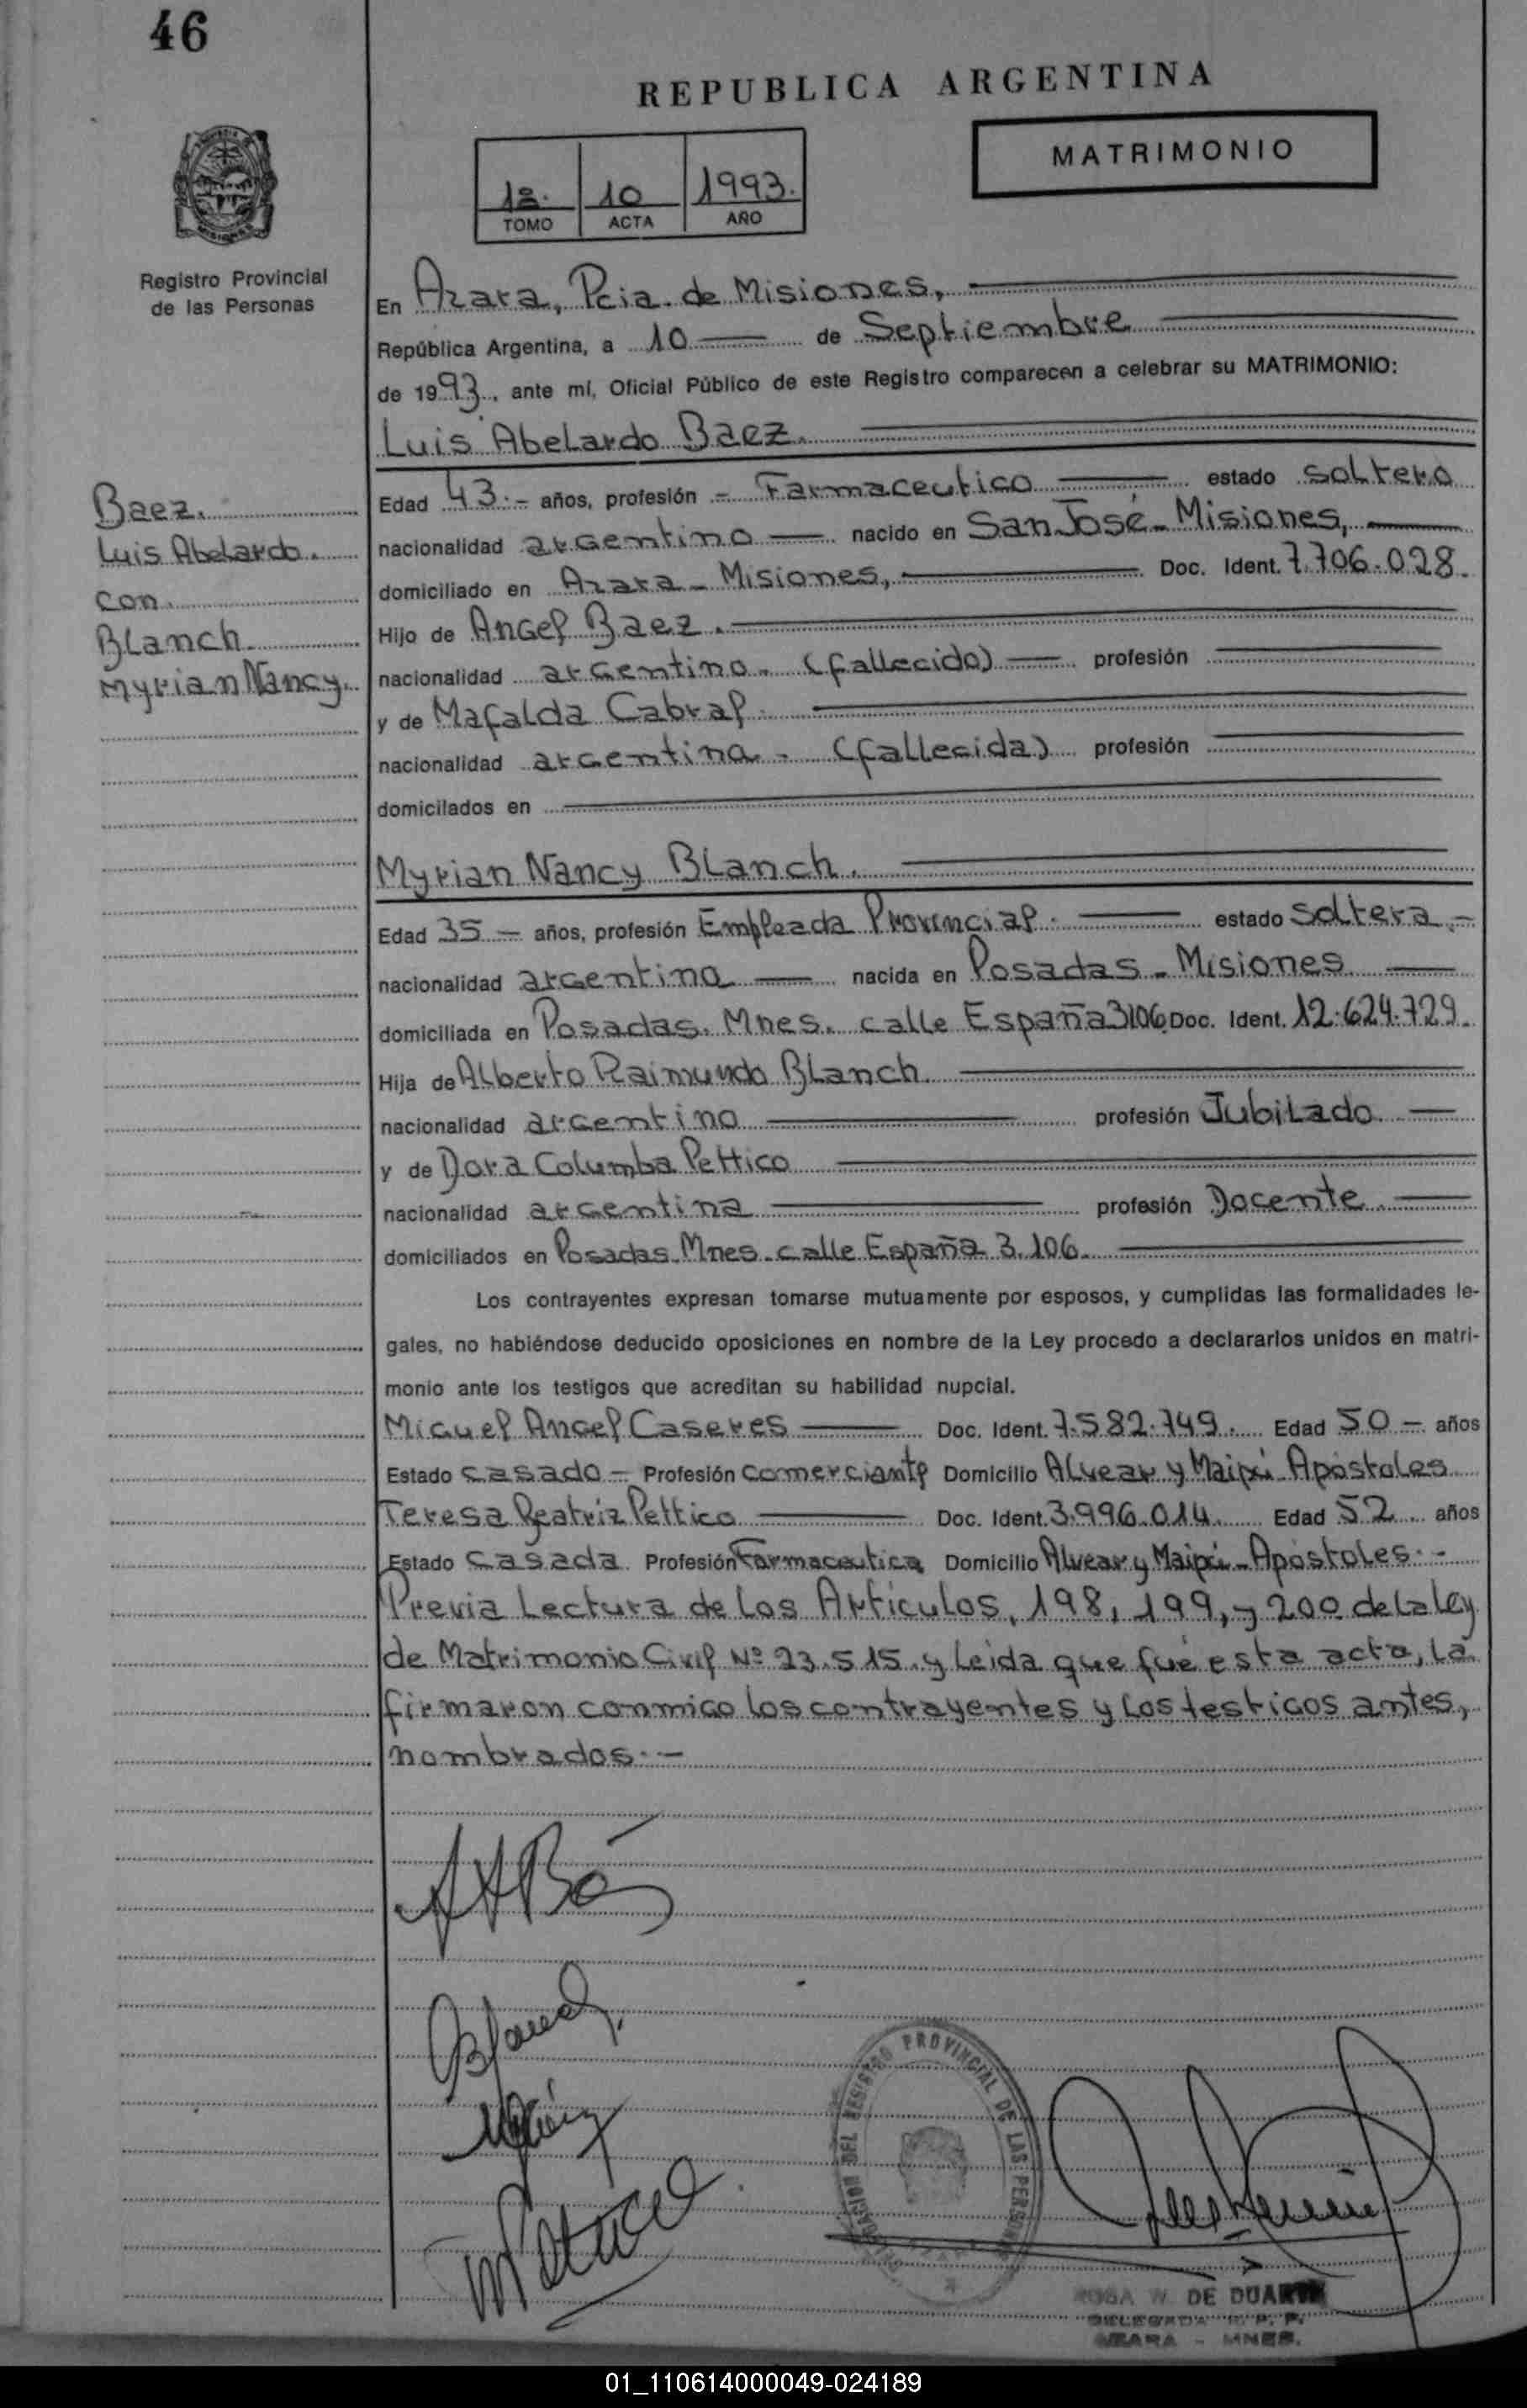 46
REPUBLICA ARGENTINA
MATRIMONIO
1º. 10 1993.
TOMO ACTA AÑO
Registro Provincial
de las Personas
En Azara, Pcia. de Misiones,
República Argentina, a 10 de Septiembre
de 1993, ante mí, Oficial Público de este Registro comparecen a celebrar su MATRIMONIO:
Luis Abelardo Baez.
Baez.
Luis Abelardo.
con
Blanch
Myrian Nancy.
Edad 43.- años, profesión - Farmaceutico estado soltero
nacionalidad argentino nacido en San José - Misiones,
domiciliado en Azara - Misiones, Doc. Ident. 7.706.028.
Hijo de Angel Baez.
nacionalidad argentino. (fallecido) profesión
y de Mafalda Cabral.
nacionalidad argentina - (fallecida) profesión
domicilados en
Myrian Nancy Blanch.
Edad 35 - años, profesión Empleada Provincial. estado soltera.-
nacionalidad argentina nacida en Posadas - Misiones
domiciliada en Posadas. Mnes. calle España 3106. Doc. Ident. 12.624.729.
Hija de Alberto Raimundo Blanch
nacionalidad argentino profesión Jubilado
y de Dora Columba Pettico
nacionalidad argentina profesión Docente.
domiciliados en Posadas. Mnes. calle España 3.106.
Los contrayentes expresan tomarse mutuamente por esposos, y cumplidas las formalidades le-
gales, no habiéndose deducido oposiciones en nombre de la Ley procedo a declararlos unidos en matri-
monio ante los testigos que acreditan su habilidad nupcial.
Miguel Angel Caseres Doc. Ident. 7.582.749. Edad 50 - años
Estado casado - Profesión comerciante Domicilio Alvear y Maipú Apóstoles
Teresa Beatriz Pettico Doc. Ident. 3.996.014. Edad 52 años
Estado casada Profesión Farmaceutica Domicilio Alvear y Maipú - Apóstoles.-
Previa Lectura de los Artículos, 198, 199, y 200 de la Ley
de Matrimonio Civil Nº 23.515. y leida que fué esta acta, la
firmaron conmigo los contrayentes y los testigos antes,
nombrados.-
Blanch
DELEGACION DEL REGISTRO PROVINCIAL DE LAS PERSONAS
ROSA W. DE DUARTE
DELEGADA R. P. P.
AZARA - MNES.
01_110614000049-024189